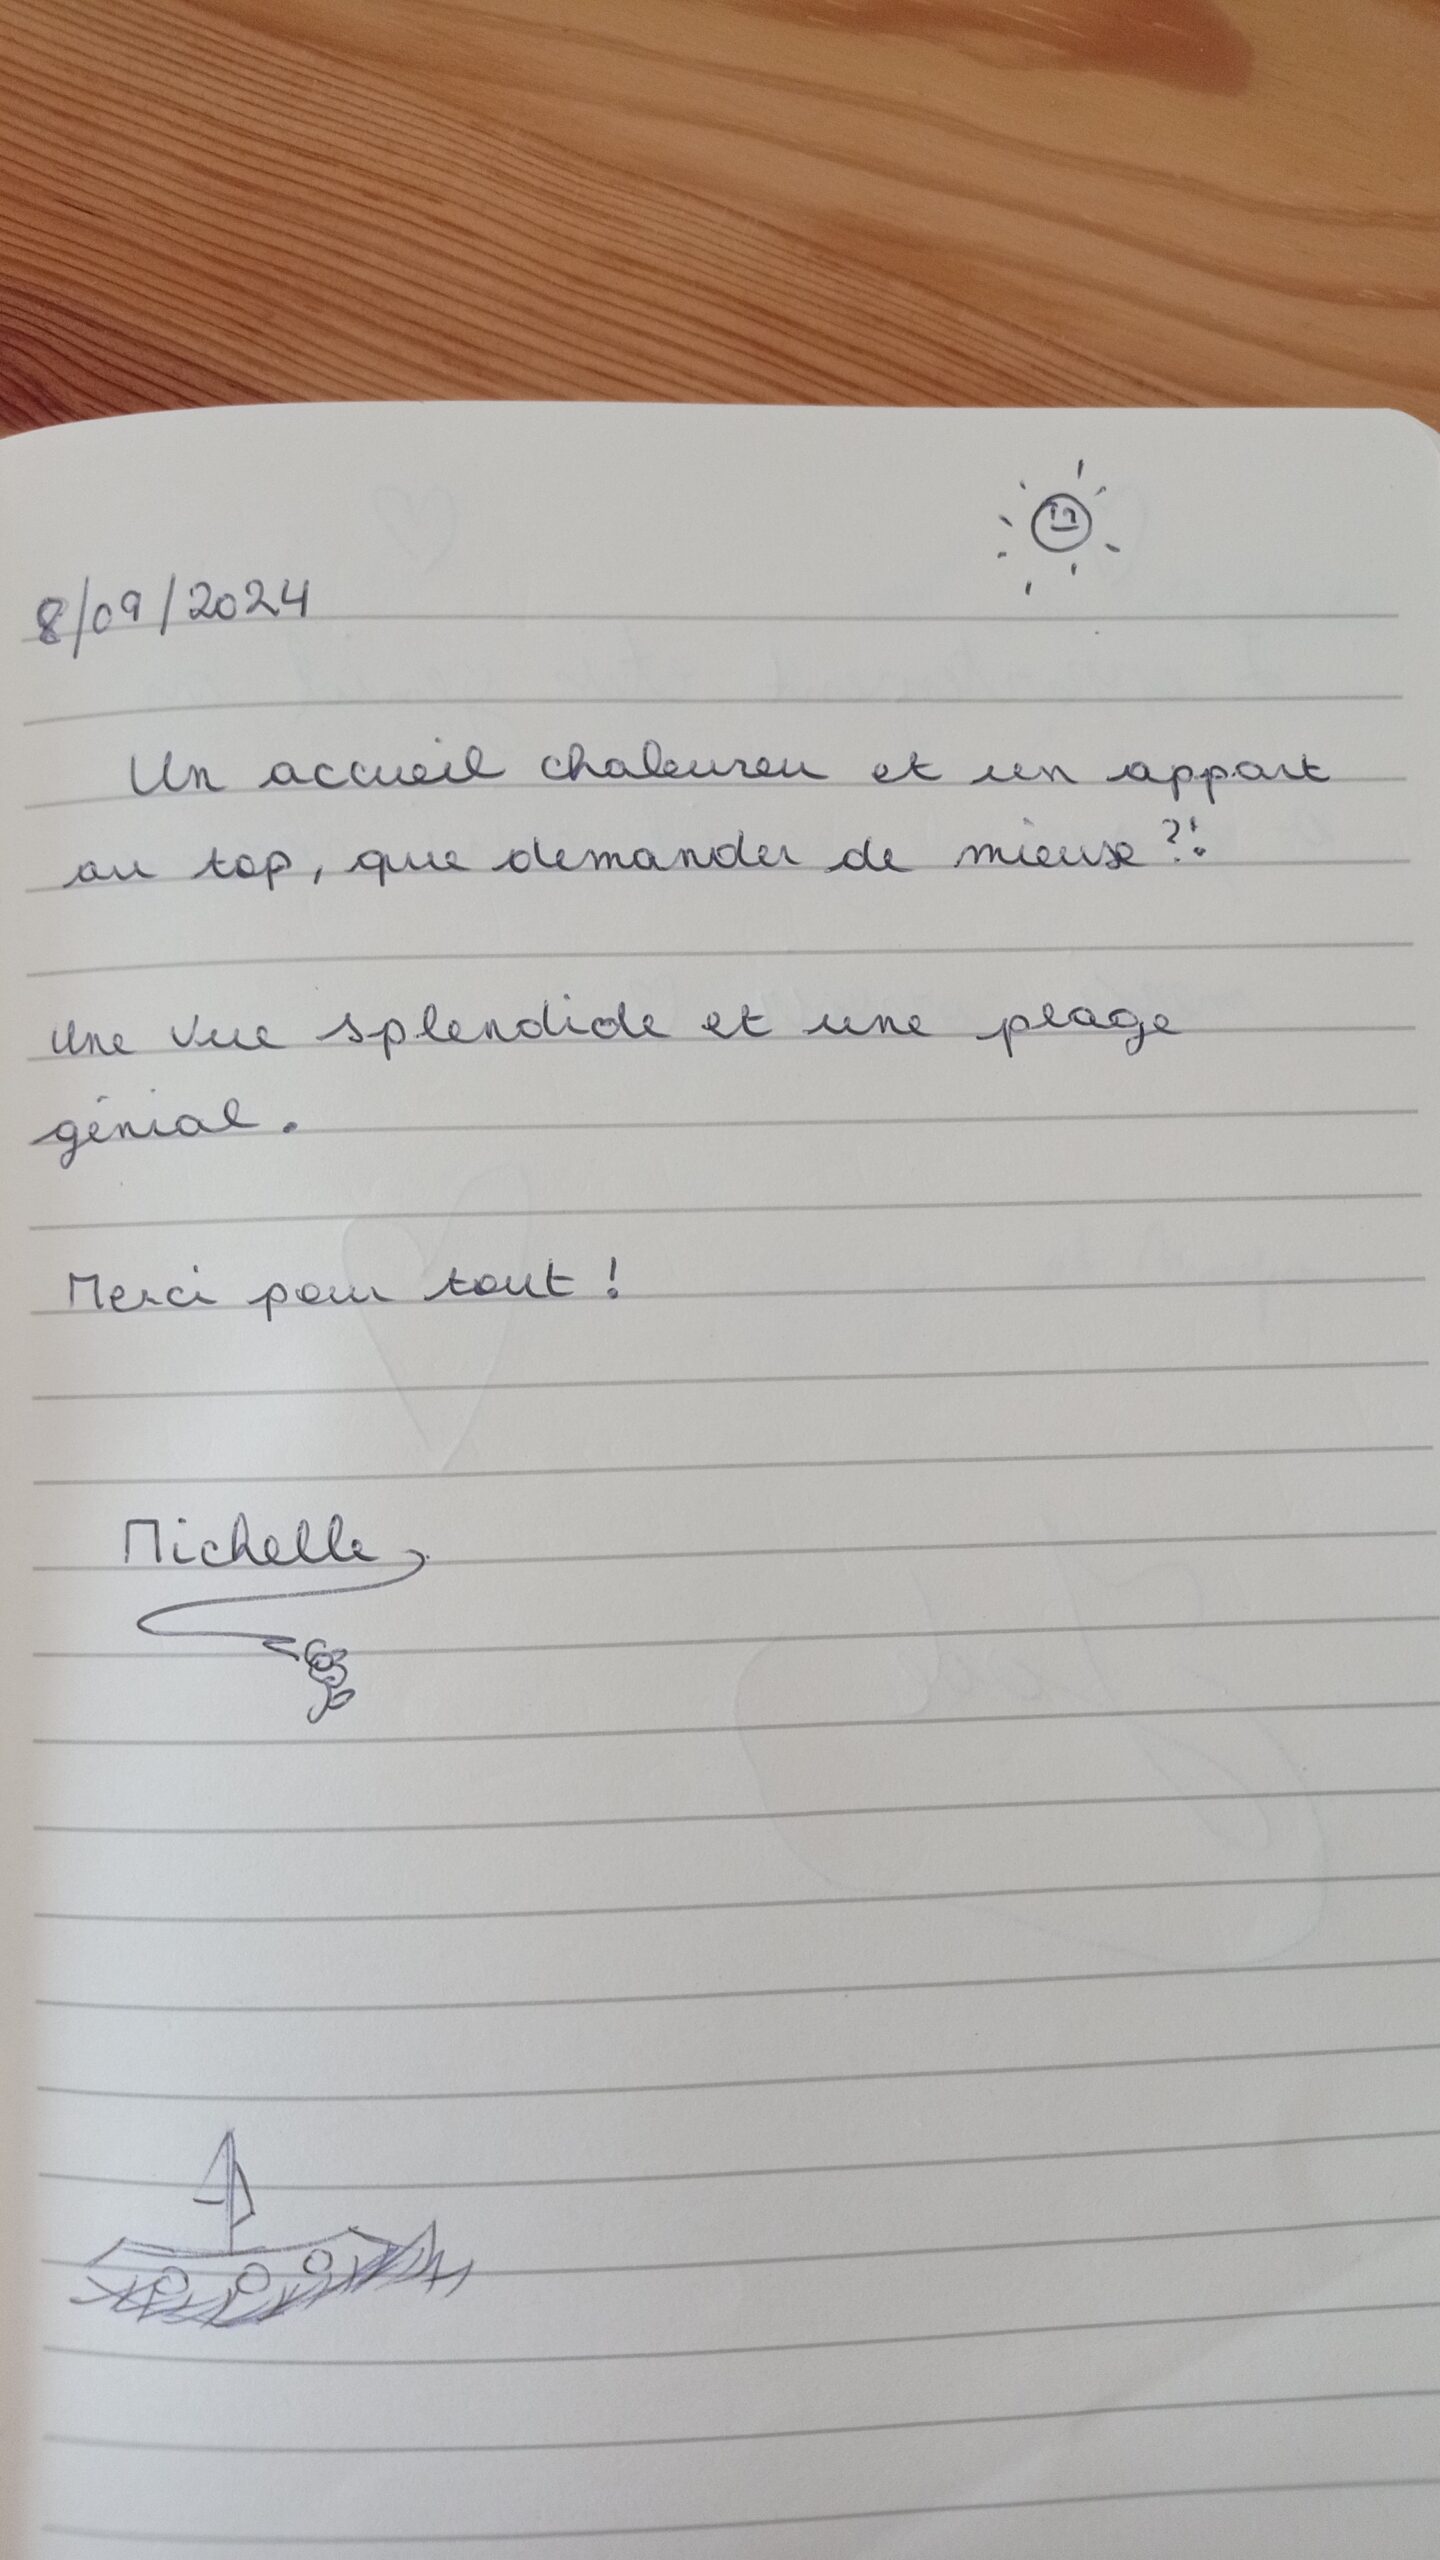 8/09/2024
Un accueil chaleureu et un appart
au top, que demander de mieux ?!
Une vue splendide et une plage
génial.
Merci pour tout !
Michelle